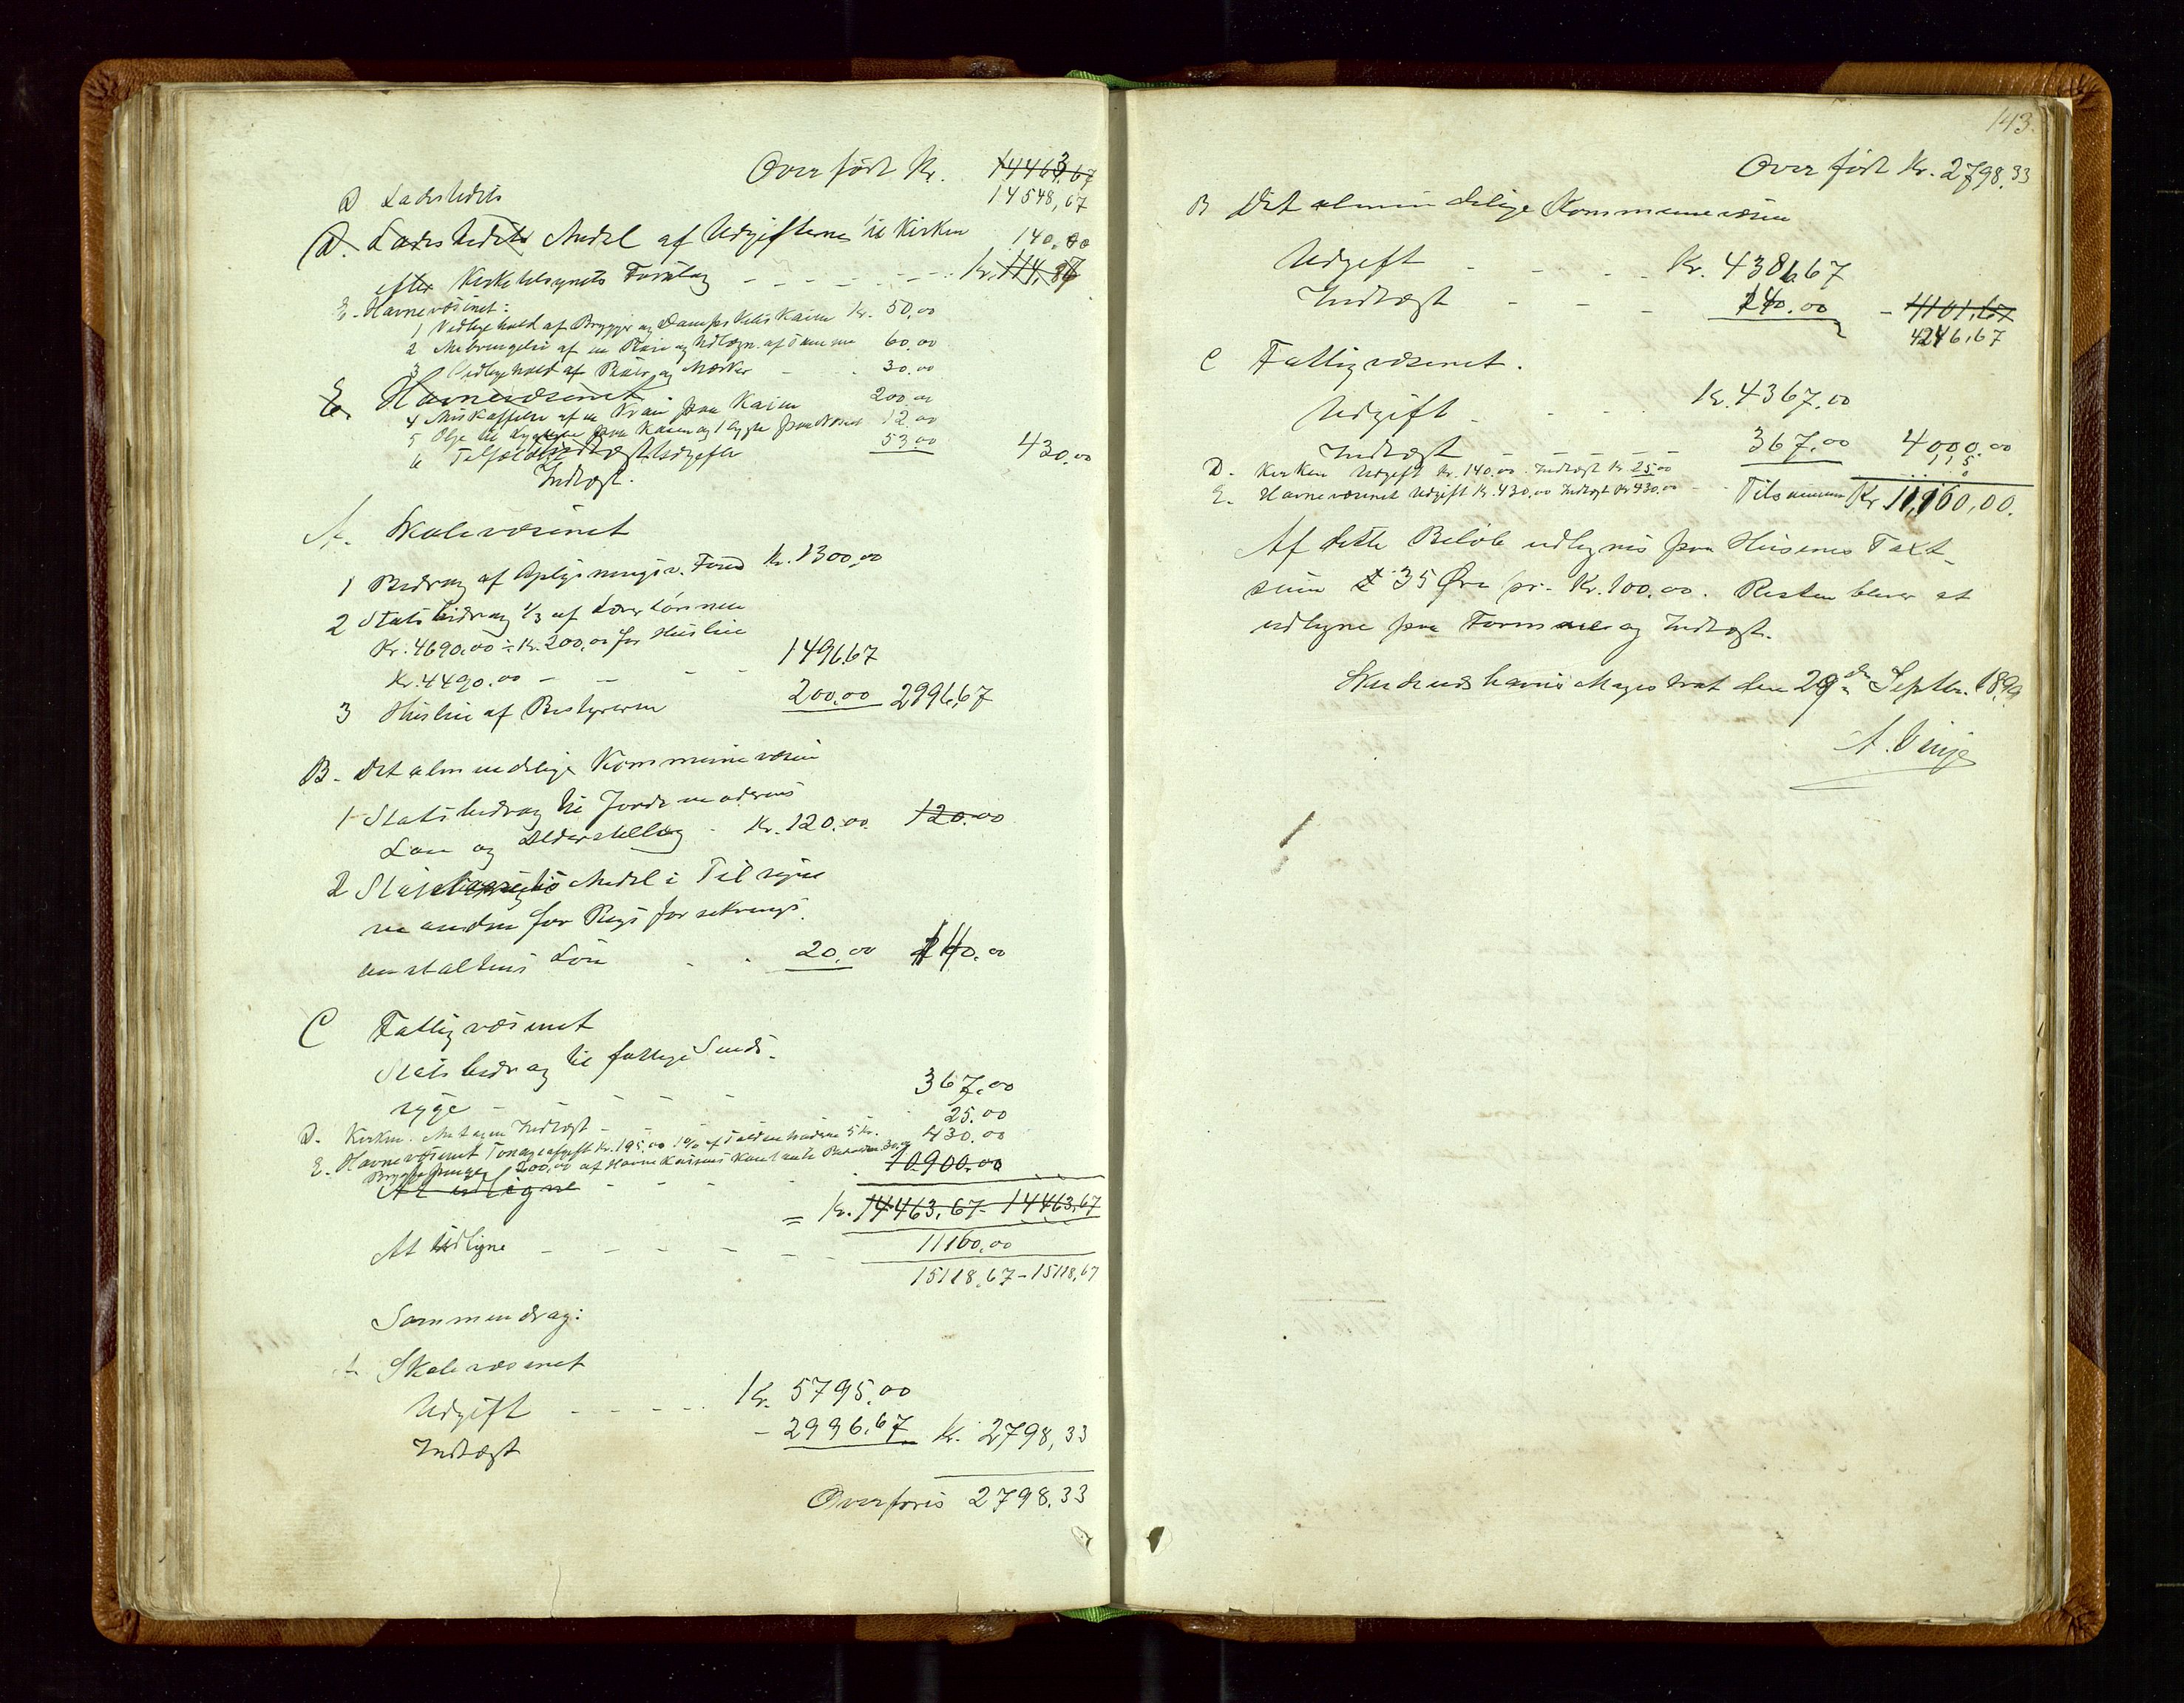 Overført Kr. 14463,67
14548,67
D Ladestedets
D. Ladestedets Andel af Udgifterne til Kirken 140.00
efter Kirketilsynets Forslag - - - - - - Kr. 114,87
E. Havnevæsenet:
1 Vedligehold af Brygger og Dampskibskaien Kr. 50,00
2 Anbringelse af en Bøie og Udlægn. af samme 60.00
3 Vedligehold af Bøier og Mærker - - 30.00
E. Havnevæsenet 200.00
4 Anskaffelse af en Kran paa Kaien
5 Olje til Lygterne paa Kaien og 1 Lygte paa 12.00
6 Tilfældige Udgifter 53.00 430.00
Indtægt.
A. Skolevæsenet
1 Bidrag af Oplysningsv. Fond Kr. 1300,00
2 Statsbidrag 1/3 af Lærerlønnen
Kr. 4690.00 ÷ Kr. 200,00 for Husleie
Kr. 4490.00 - - - - 1496.67
3 Husleie af Bestyreren 200.00 2996,67
B. Det almindelige Kommunevæsen
1 Statsbidrag til Jordemoderens
Løn og Alderstillæg - Kr. 120.00. 120.00
2 Andel i Tilsyns
manden for Rigsforsikrings
anstaltens Løn - - 20.00 140.00
C Fattigvæsenet
Statsbidrag til fattige Sinds-
syge - - - - - 367.00
D. Kirken. Antagen Indtægt - - - 25.00
E. Havnevæsenet Tonageafgift Kr. 195,00 430.00
Bryggepenge 200,00 af Havnekassens kontante
At udligne - - - 10900.00
= Kr. 14463,67 - 14463,67
At Udligne - - - - - - 11160,00
15118,67 - 15118,67
Sammendrag:
A. Skolevæsenet
Udgift - - - - - Kr. 5795,00
Indtægt - 2996,67 Kr. 2798,33
Overføres 2798,33
143.
Overført Kr. 2798,33
B Det almindelige Kommunevæsen
Udgift - - - - Kr. 4386,67
Indtægt - - - 140.00 - 4101,67
4246,67
C Fattigvæsenet.
Udgift - - - Kr. 4367.00
Indtægt - - - 367.00 4000,00
D. Kirken Udgift Kr. 140.00. Indtægt Kr 25.00 115
E. Havnevæsenet Udgift Kr. 430,00 Indtægt Kr 430,00 - - 0
Tilsammen Kr 11,160,00.
Af dette Beløb udlignes paa Husenes Taxt-
sum 35 Øre pr. Kr. 100.00. Resten bliver at
udligne paa Formue og Indtægt.
Skudeneshavns Magistrat den 29de Septbr. 1899
A. Vinje